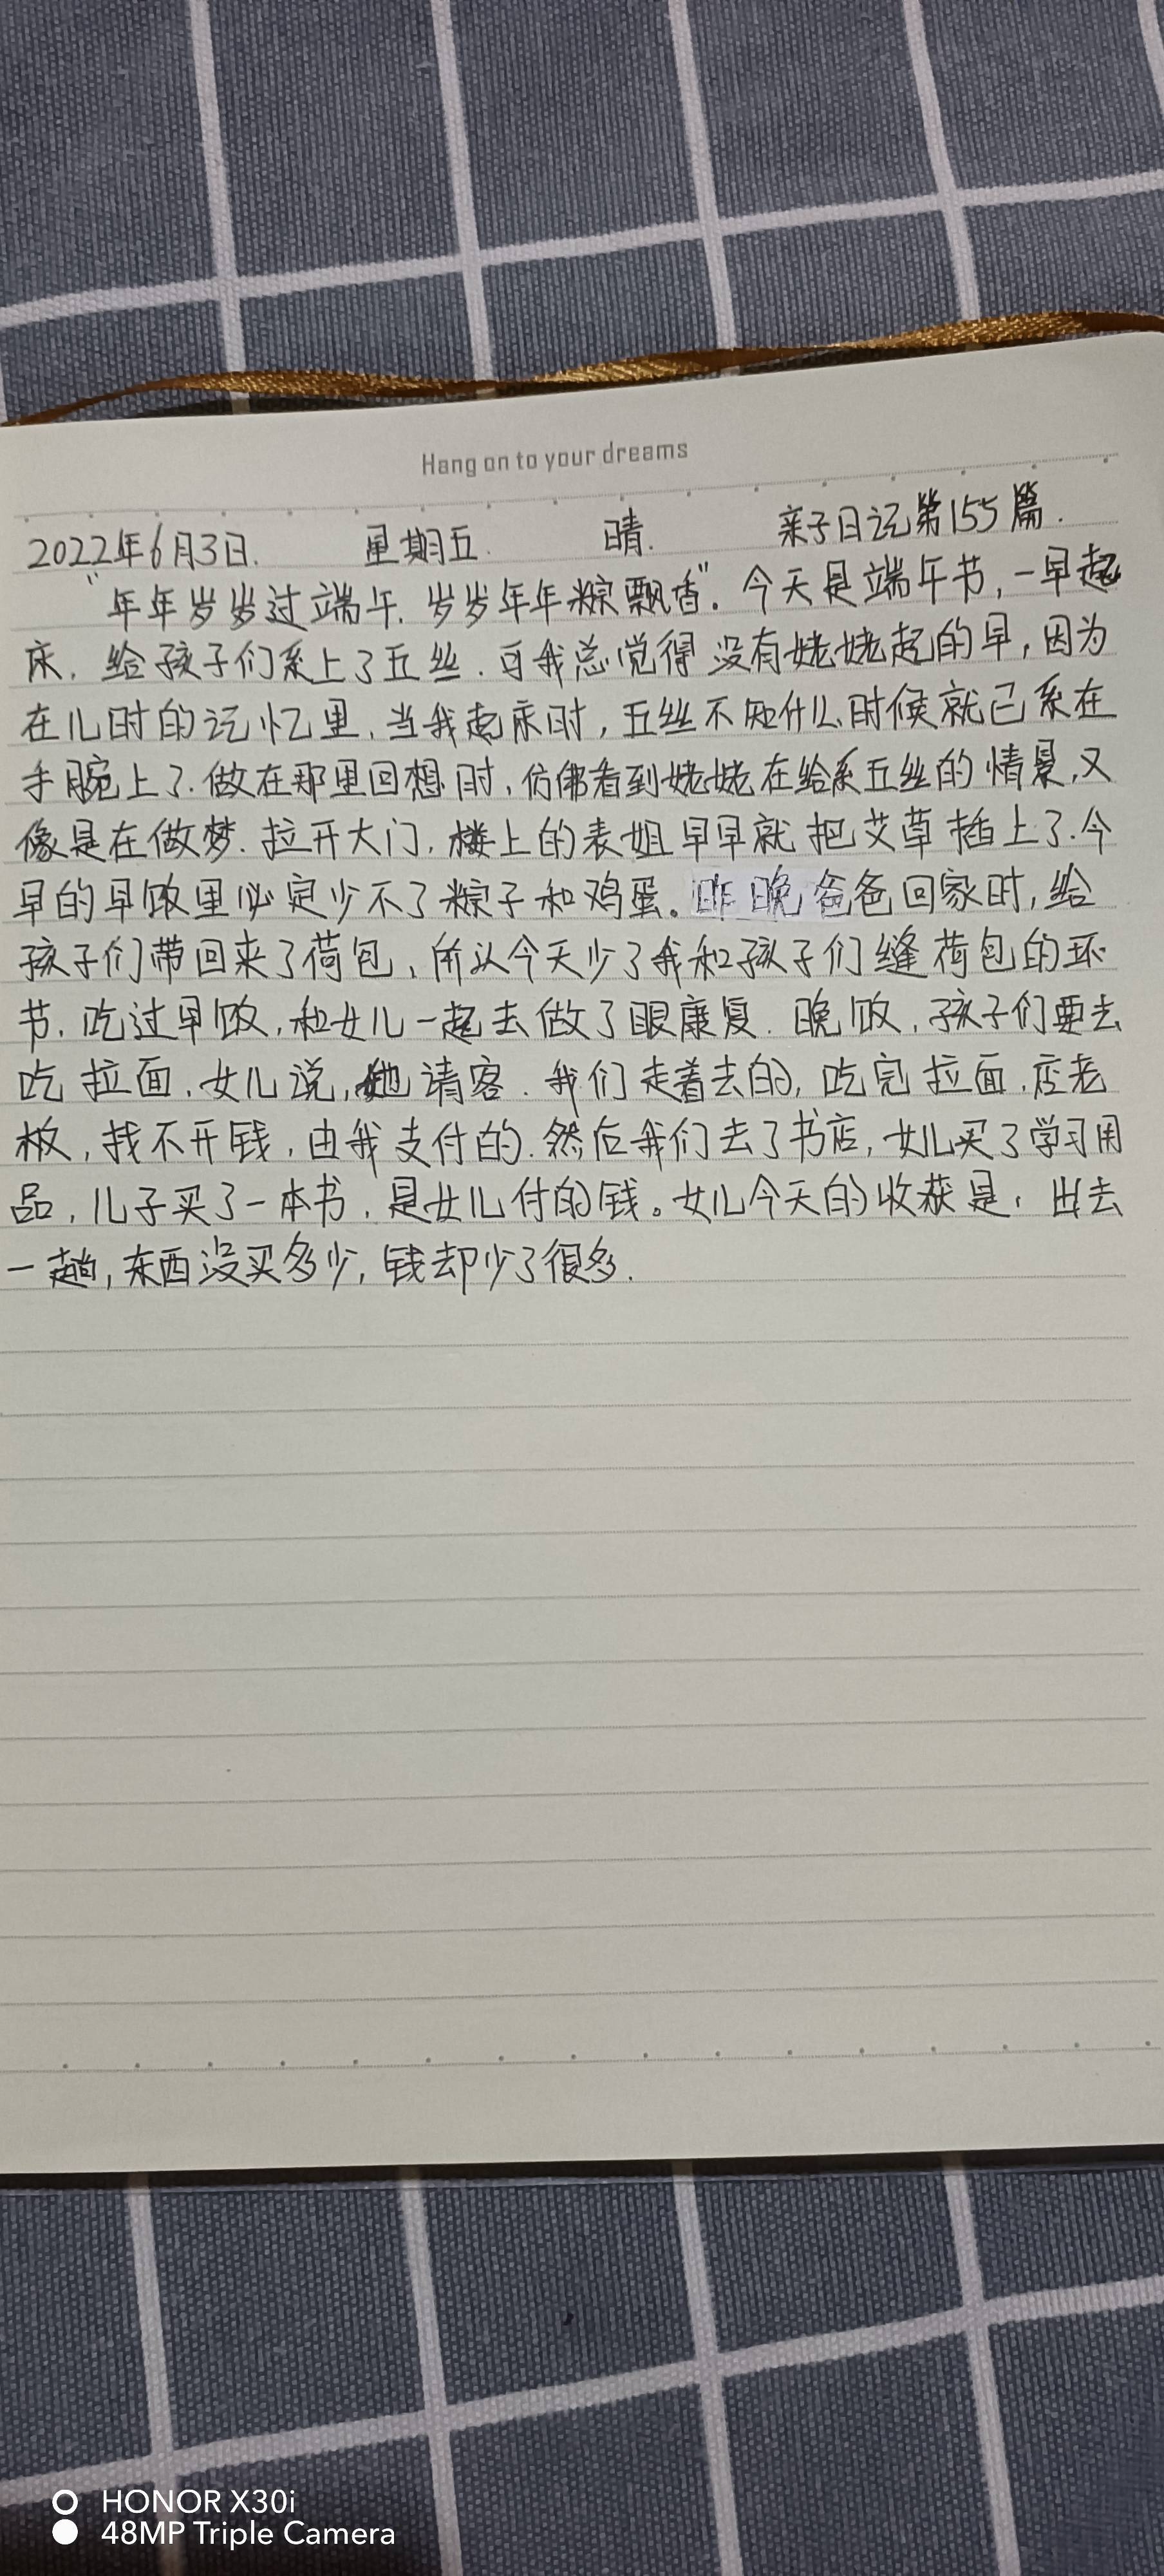 Hang on to your dreams
2022年6月3日. 星期五. 晴. 亲子日记第155篇.
"年年岁岁过端午. 岁岁年年粽飘香"。今天是端午节,一早起
床. 给孩子们系上了五丝. 可我总觉得没有姥姥起的早,因为
在儿时的记忆里. 当我起床时,五丝不知什么时候就已系在
手腕上了. 做在那里回想时,仿佛看到姥姥在给系五丝的情景,又
像是在做梦. 拉开大门,楼上的表姐早早就把艾草插上了. 今
早的早饭里必定少不了粽子和鸡蛋。昨晚爸爸回家时,给
孩子们带回来了荷包,所以今天少了我和孩子们缝荷包的环
节. 吃过早饭,和女儿一起去做了眼康复. 晚饭,孩子们要去
吃拉面,女儿说,她请客. 我们走着去的,吃完拉面,店老
板,找不开钱,由我支付的. 然后我们去了书店,女儿买了学习用
品,儿子买了一本书,是女儿付的钱。女儿今天的收获是,出去
一趟,东西没买多少,钱却少了很多.
HONOR X30i
48MP Triple Camera